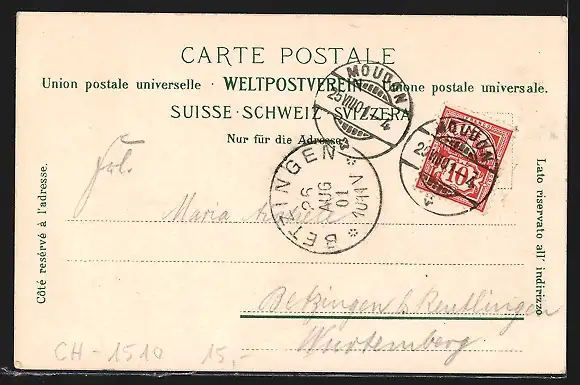 CARTE POSTALE
Union postale universelle · WELTPOSTVEREIN · Unione postale universale.
SUISSE · SCHWEIZ · SVIZZERA
Nur für die Adresse.
MOUDON
25 VIII 01 - 4
MOUDON
25 VIII 01 - 4
10
BETZINGEN
26 AUG 01
10-11 V
Frl.
Maria
Betzingen b. Reutlingen
Wurtemberg
Côté resérvé à l'adresse.
Lato riservato all' indirizzo
CH - 1510 15,-